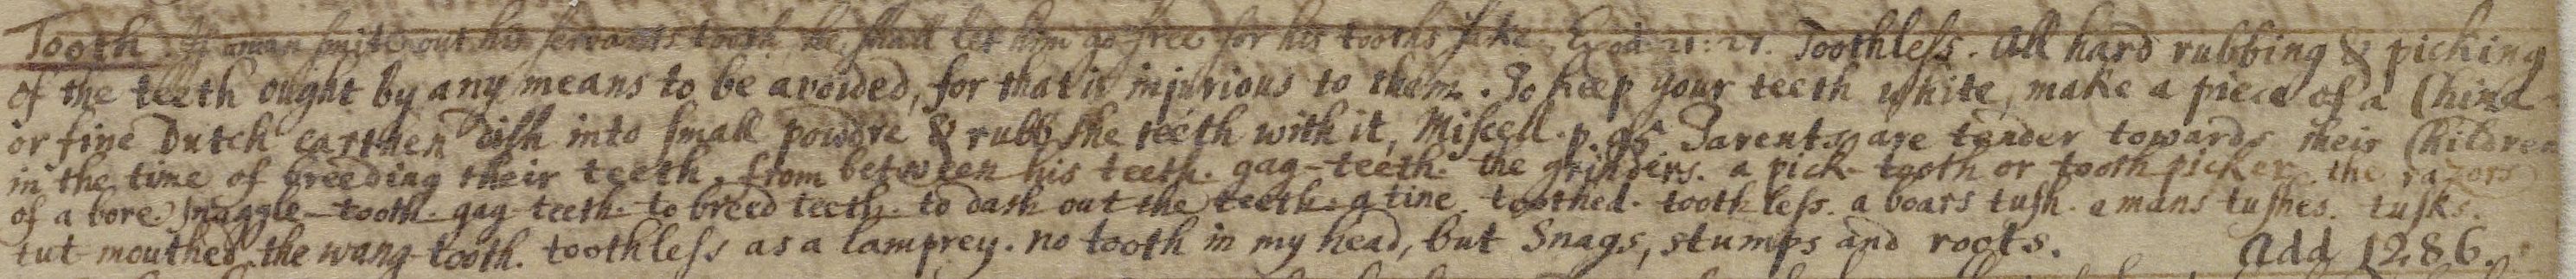 Tooth. If a man smite out his servants tooth, he shall let him go free for his tooths sake, Exod 21:27. Toothless. All hard rubbing & picking
of the teeth ought by any means to be avoided, for that is injurious to them. To keep your teeth white, make a piece of a China
or fine Dutch earthen dish into small powdre & rubb the teeth with it, Miscell. p. 95. Parents are tender towards their Children
in the time of breeding their teeth. from between his teeth. gag-teeth. the grinders. a pick-tooth or tooth picker. the razors
of a bore. snaggle-tooth. gag-teeth. to breed teeth. to dash out the teeth. a tine. toothed. toothless. a boars tush. a mans tushes. tusks.
tut-mouthed. the wang-tooth. toothless as a lamprey. no tooth in my head, but Snags, stumps and roots. Add 1286.